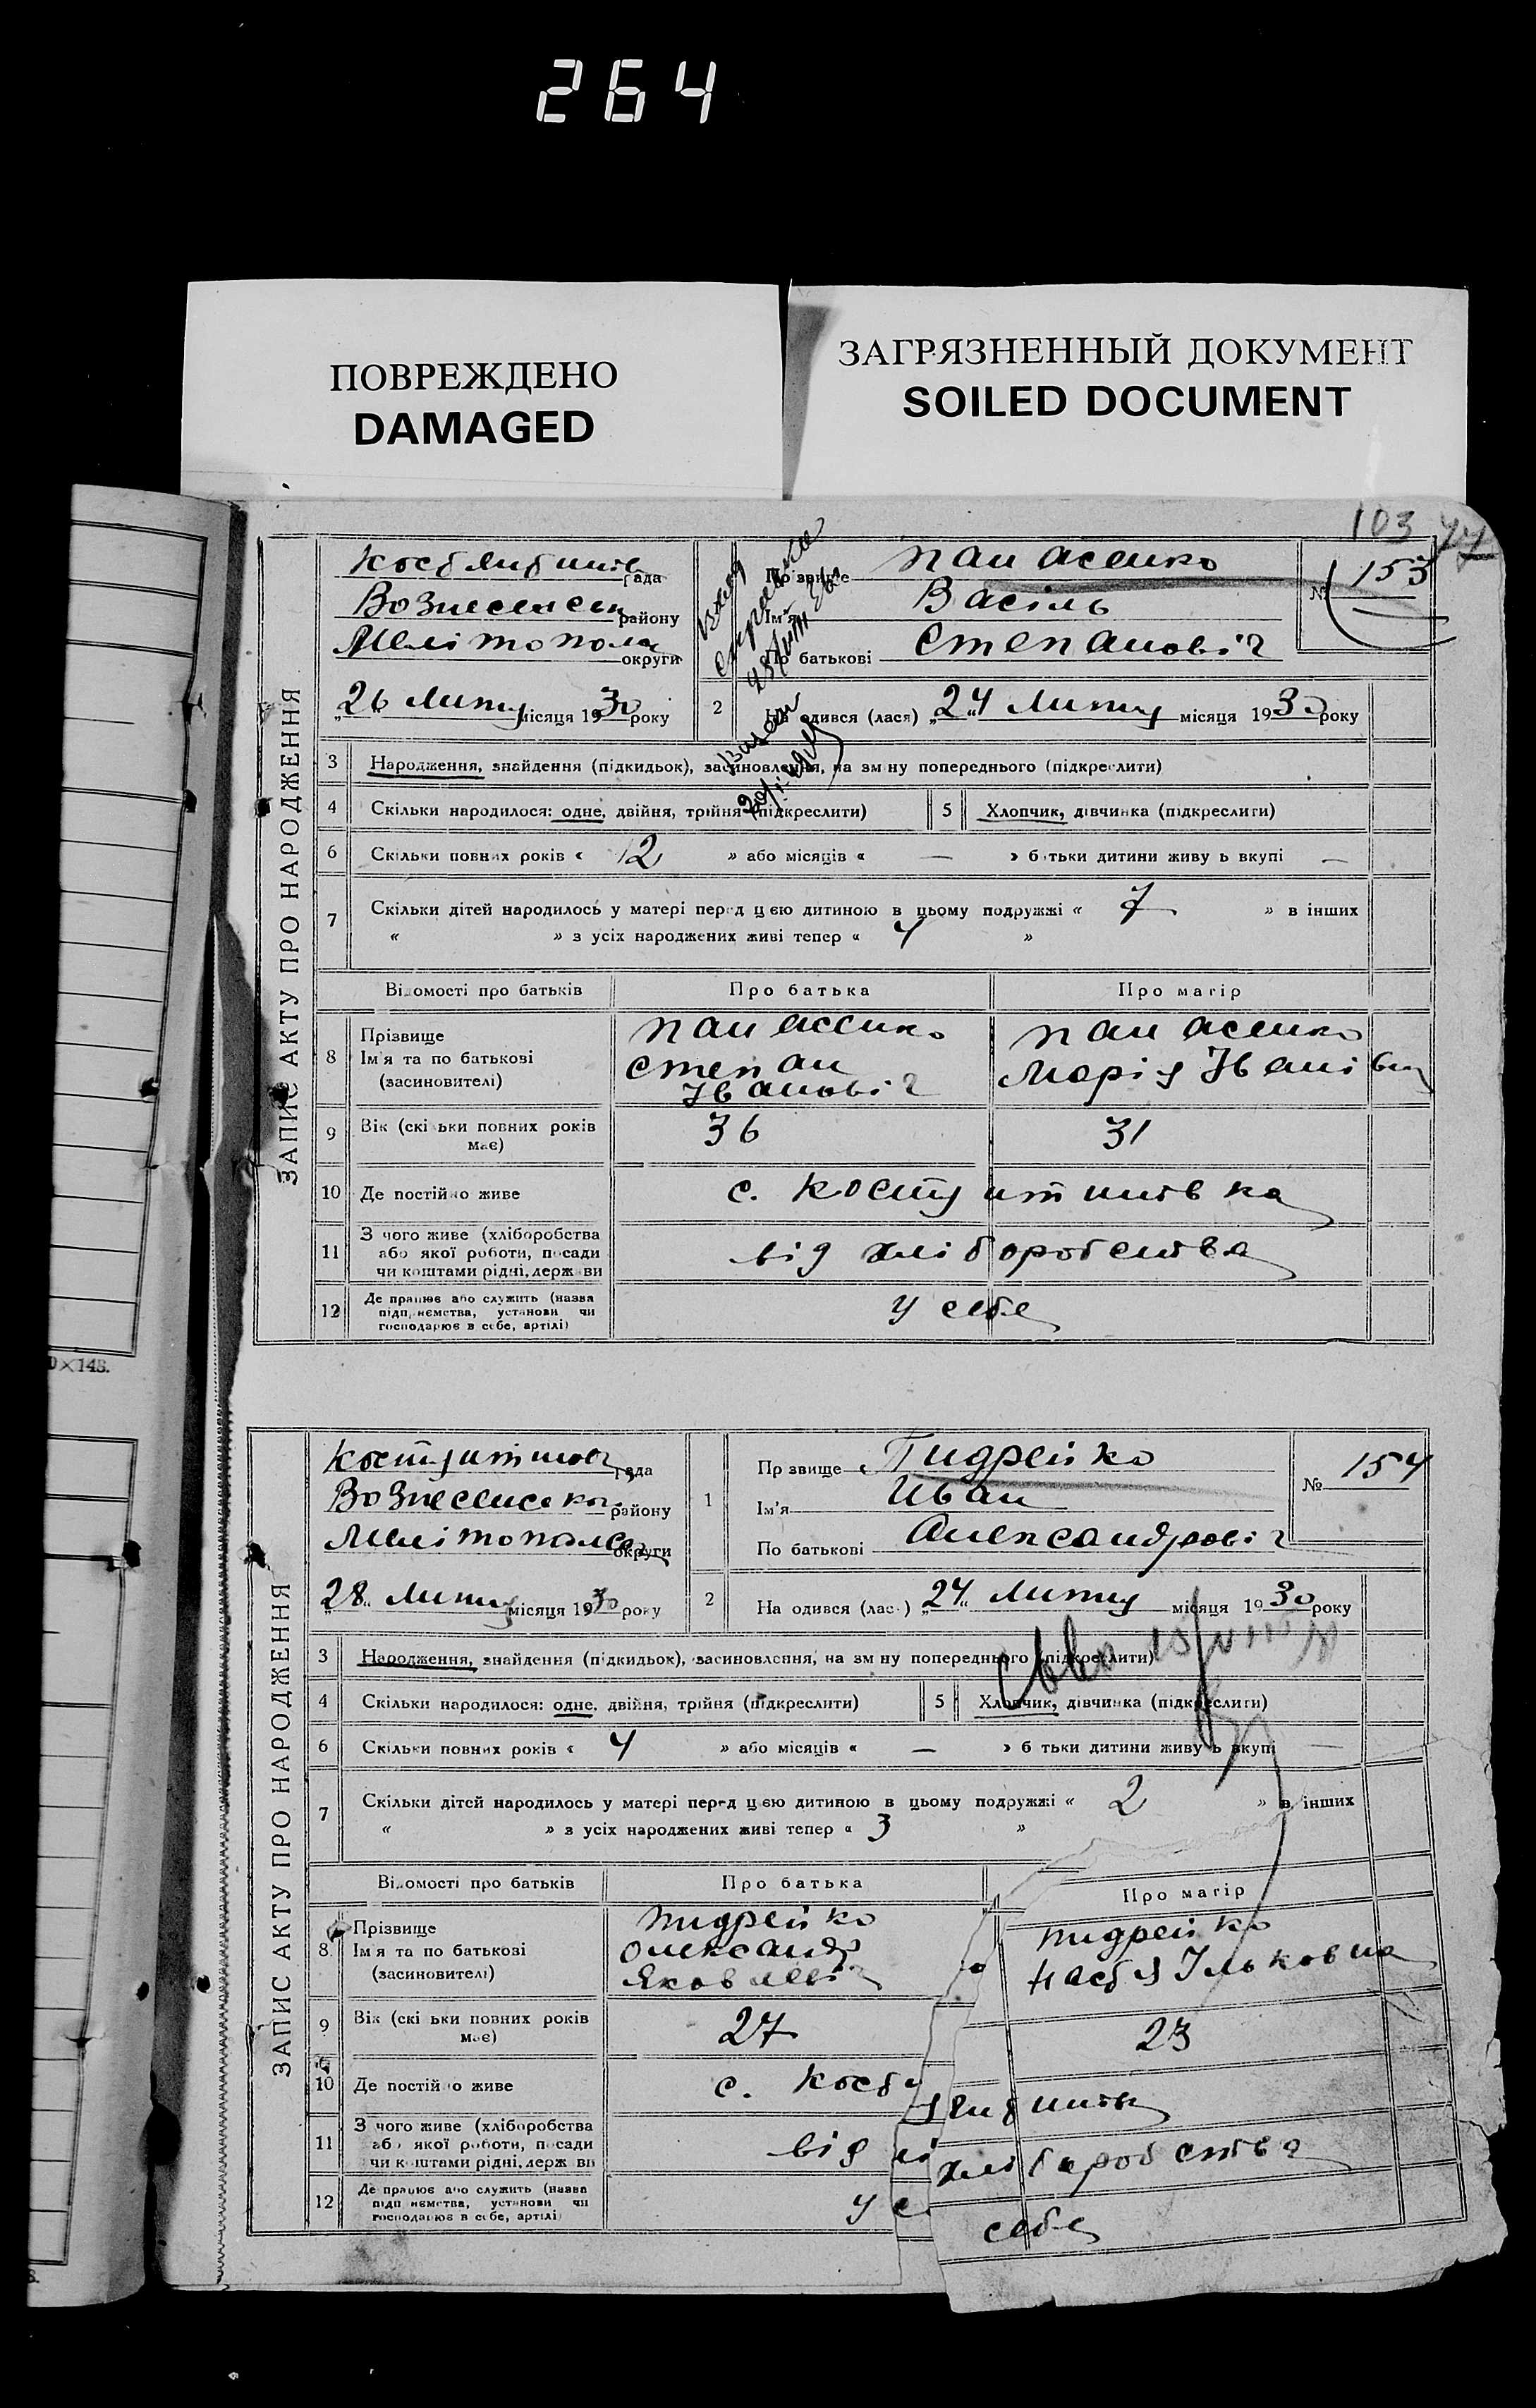 264
ПОВРЕЖДЕНО
DAMAGED
ЗАГРЯЗНЕННЫЙ ДОКУМЕНТ
SOILED DOCUMENT
103
ЗАПИС АКТУ ПРО НАРОДЖЕННЯ
рада
району
Мелітопола округи
„26“ Люту місяця 1930 року
Прізвище Панасенко
Ім'я Васіль
По батькові Степановіч
№ 153
2 На одився (лася) „24“ Люту місяця 1930 року
3 Народження, знайдення (підкидьок), засиновлення, на зм ну попереднього (підкреслити)
4 Скільки народилося: одне, двійня, трійня (підкреслити) 5 Хлопчик, дівчинка (підкреслити)
6 Скільки повних років « 12 » або місяців « — » б тьки дитини живу ь вкупі —
7 Скільки дітей народилось у матері перед цією дитиною в цьому подружжі « 7 » в інших
« » з усіх народжених живі тепер « 4 »
Відомості про батьків Про батька Про матір
8 Прізвище Панасенко Панасенко
Ім'я та по батькові Степан Марія Іванівна
(засиновителі) Івановіч
9 Вік (скі ьки повних років має) 36 31
10 Де постійно живе с. Костянтинівка
11 З чого живе (хліборобства
або якої роботи, посади від хліборобства
чи коштами рідні, держ ви
12 Де працює або служить (назва
підпр ємства, установи чи у себе
господарює в себе, артілі)
0×148.
ЗАПИС АКТУ ПРО НАРОДЖЕННЯ
рада
Вознесенського району
Мелітополя округи
„28“ Люту місяця 1930 року
1 Пр звище Гидрейко
Ім'я Иван
По батькові Александровіч
№ 154
2 На одився (лас ) „24“ Люту місяця 1930 року
3 Народження, знайдення (підкидьок), засиновлення, на зм ну попереднього (підкреслити)
4 Скільки народилося: одне, двійня, трійня (підкреслити) 5 Хлопчик, дівчинка (підкреслити)
6 Скільки повних років « 4 » або місяців « — » б тьки дитини живу ь вкупі —
7 Скільки дітей народилось у матері перед цією дитиною в цьому подружжі « 2 » в інших
« » з усіх народжених живі тепер « 3 »
Відомості про батьків Про батька Про матір
8 Прізвище
Ім'я та по батькові Олександр Настя Ільковна
(засиновителі)
9 Вік (скі ьки повних років має) 27 23
10 Де постійно живе с.
11 З чого живе (хліборобства
або якої роботи, посади від хліборобства
чи коштами рідні, держ ви
12 Де працює або служить (назва
підп ємства, установи чи у себе
господарює в себе, артілі)